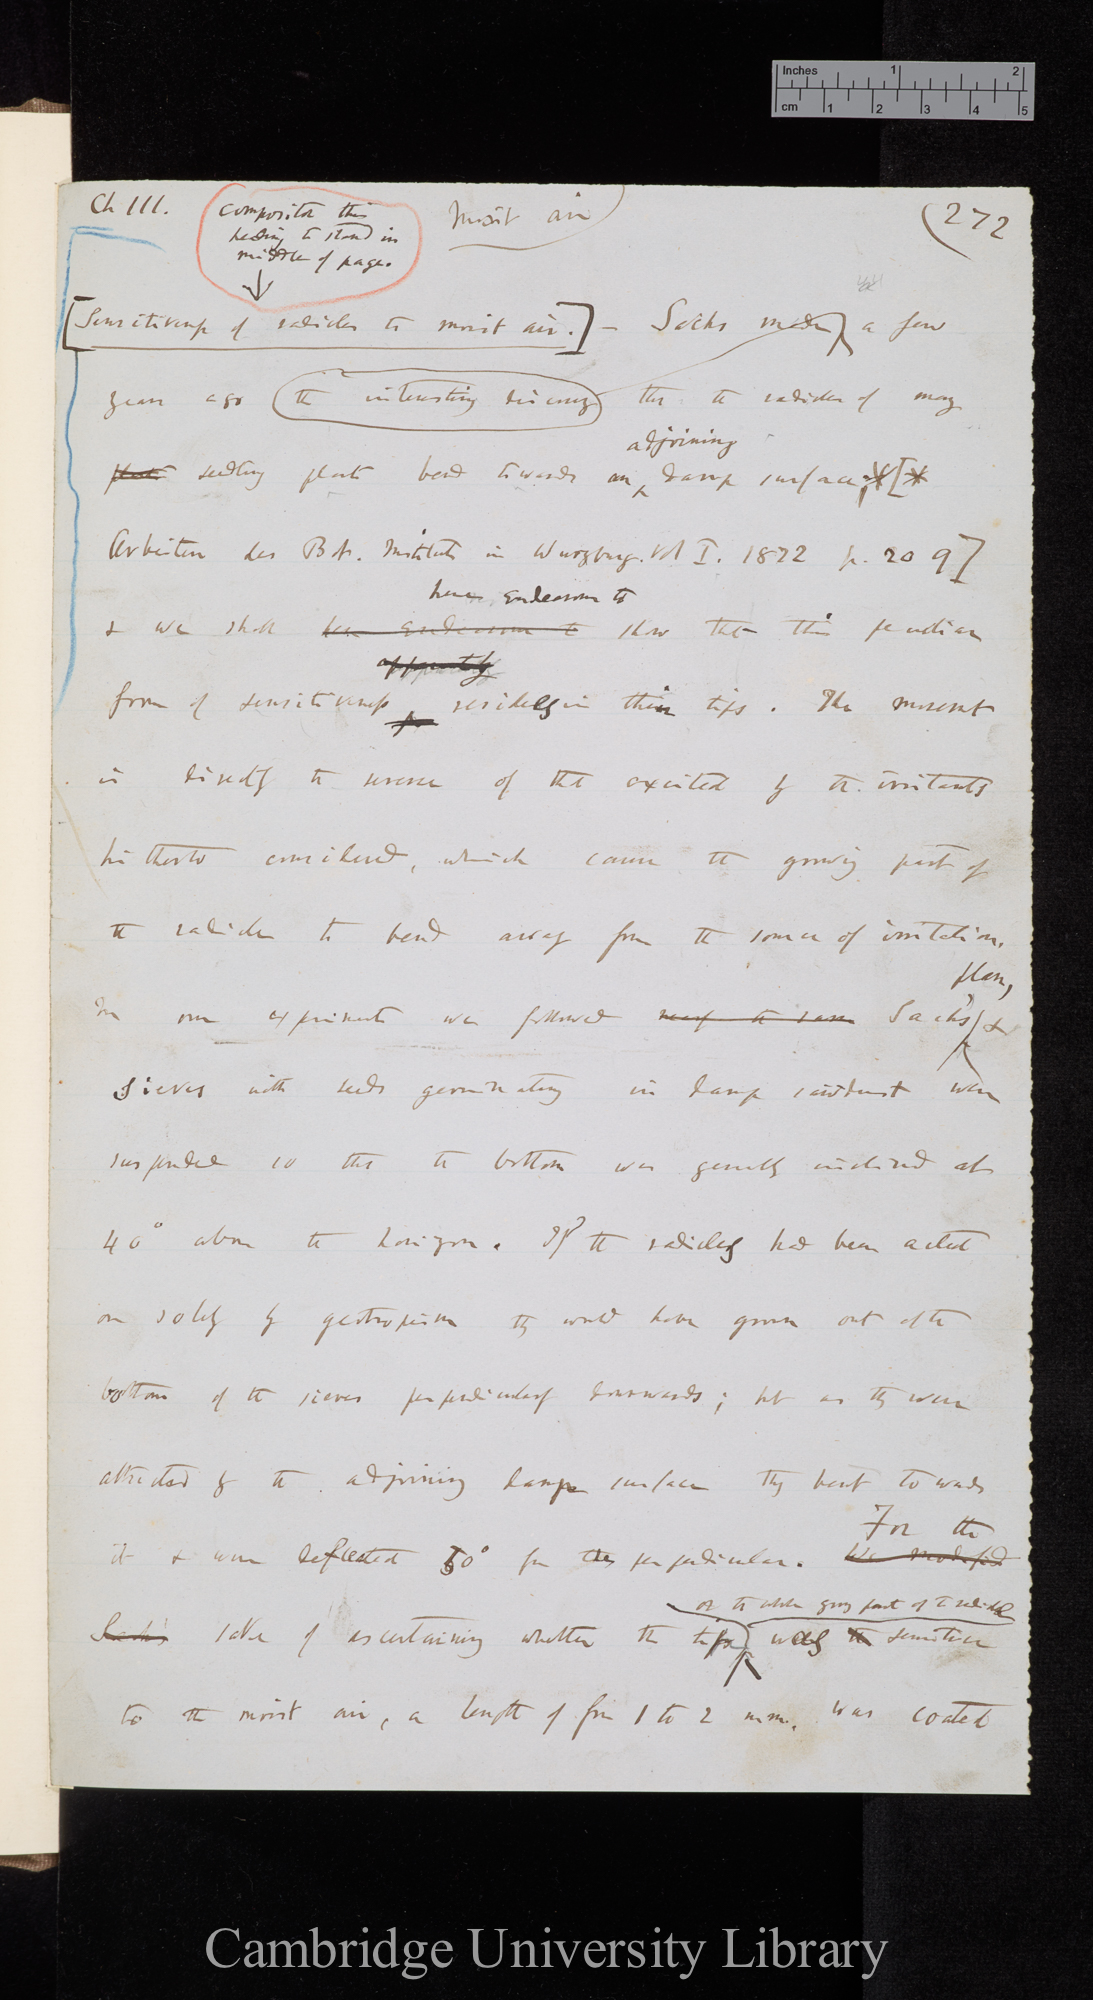 Inches 1 2
cm 1 2 3 4 5
Ch III.
Compositor this
heading to stand in
middle of page.
Moist air
(272
[Sensitiveness of radicles to moist air.] — Sachs made a few
years ago the interesting discovery that the radicles of many
plants seedling plants bend towards an adjoining damp surface; [*
Arbeiten des Bot. Instituts in Wurzburg. Vol I. 1872 p. 209]
here endeavour to
& we shall here endeavour to show that this peculiar
apparently
form of sensitiveness resides in their tips. The movement
is directly the reverse of that excited by the irritants
hitherto considered, which cause the growing part of
the radicle to bend away from the source of irritation.
plan,
In our experiments we followed nearly the same Sachs' &
sieves with seeds germinating in damp sawdust were
suspended so that the bottom was generally inclined at
40° above the horizon. If the radicles had been acted
on solely by geotropism they would have grown out of the
bottom of the sieves perpendicularly downwards; but as they were
attracted by the adjoining damp surface they bent towards
For the
it & were deflected 50° from the perpendicular. We modified
or the whole growing part of the radicle
Sachs' sake of ascertaining whether the tip was the sensitive
to the moist air, a length of from 1 to 2 mm. was coated
Cambridge University Library